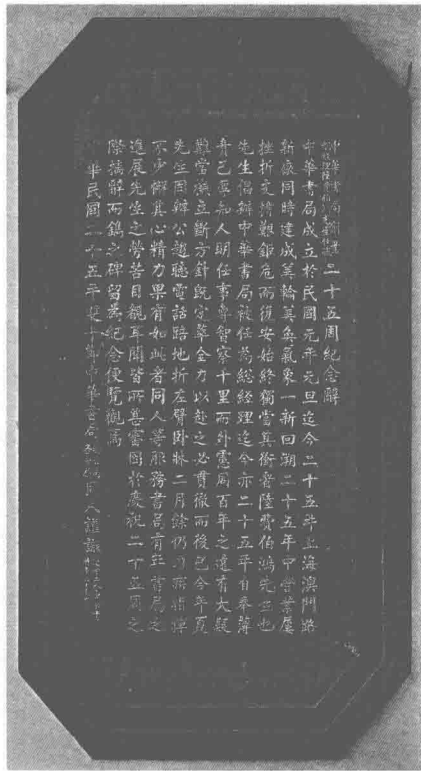 中華書局創業
總經理陸費伯鴻先生任職二十五周紀念辭
中華書局成立於民國元年元旦迄今二十五年上海澳門路
新廠同時建成美輪美奐氣象一新回溯二十五年中營業屢
挫折支持艱鉅危而復安始終獨當其衝者陸費伯鴻先生也
先生倡辦中華書局被任為總經理迄今亦二十五年自奉薄
責己厚知人明任事專智察千里而外慮周百年之遠有大疑
難當機立斷方針既定華全力以赴之必貫徹而後已今年夏
先生因辦公趨聽電話踣地折左臂臥牀二月餘仍
不少懈其心精力果有如此者同人等服務書局有年書局之
進展先生之勞苦目覩耳聞皆所甚審因於慶祝二十五周之
際摛辭而鐫之碑留為紀念便覽觀焉
華民國二十五年 中華書局 同人謹識